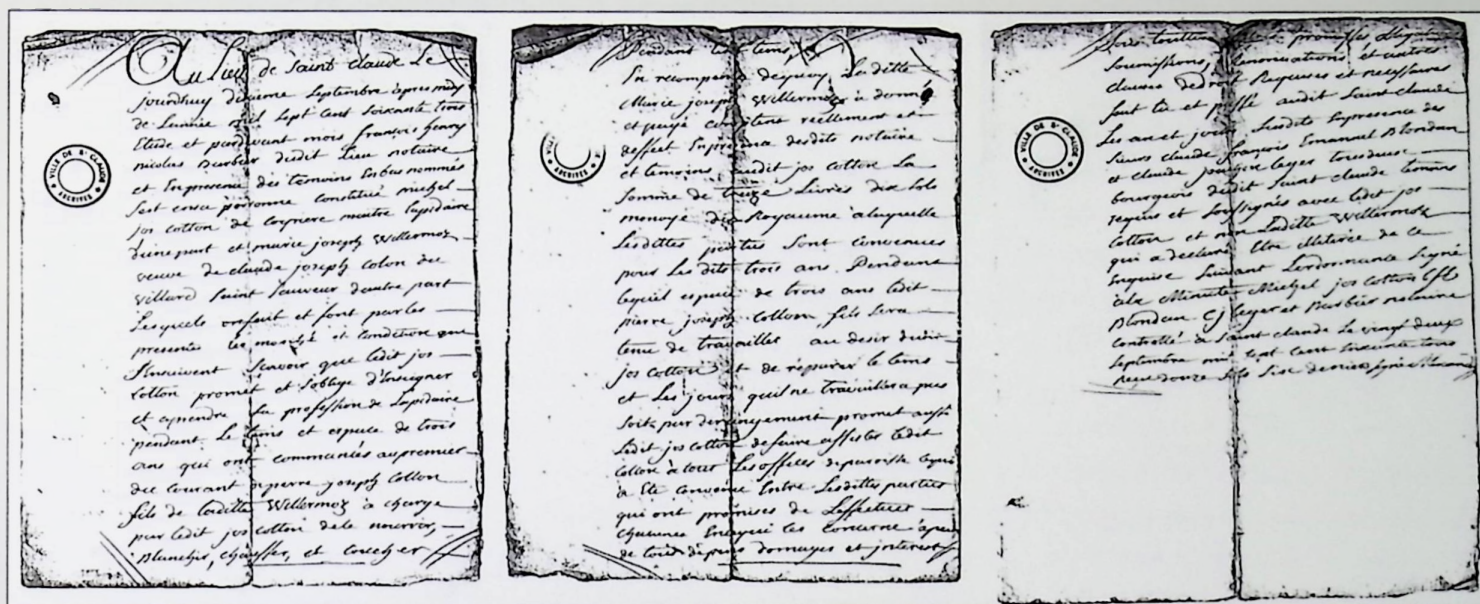 Au Lieu de Saint Claude Le
jourdhuy dixieme Septembre apres midy
de Lannée mil Sept Cent Soixante trois
Etude et pardevant mois françois henry
nicolas Barbier dudit Lieu notaire
et En presence des temoins Enbas nommés
Sest ensa personne constitué michel
jos cotton de maitre Lapidaire
dune part et marie joseph Willermoz
veuve de claude joseph coton du
villard Saint Sauveur dautre part
Lesquels ont fait et font par les
presentes Le marché et Condition que
Sensuivent Scavoir que ledit jos
cotton promet et Soblige d'Enseigner
et aprendre La profession de Lapidaire
pendant Le tems et espace de trois
ans qui ont commancés au premier
du courant a pierre joseph Cotton
fils de Laditte Willermoz à charge
par ledit jos cotton de le nourrir,
Blanchir, chauffer, et coucher
VILLE DE St CLAUDE
ARCHIVES
Pendant tems,
En recompense dequoy Laditte
Marie joseph Willermoz à donné
et payé comptent reellement et
deffect En presence desdits notaire
et temoins audit jos cotton La
Somme de treize Livres dix Sols
monoye du Royaume alaquelle
Lesdittes parties Sont Convenues
pour Les dits trois ans Pendant
lequel espace de trois ans ledit
pierre joseph Cotton fils Sera
tenu de travailler au desir dudit
jos cotton et de réparer le tems
et Les jours quil ne travaillera pas
Soit par derangement promet aussi
Ledit jos cotton de faire assister ledit
cotton à tout Les offices de paroisse
à Eté Convenu Entre Lesdittes parties
qui ont promises de Leffectuer
chacunes Enceque les concerne à peine
de tous depens domages et jnterest
ARCHIVES
Sous promisses
Soumissions, Renonciations et autres
clauses de droit Requises et necessaires
fait Lu et passé audit Saint Claude
Les an et jour Susdits En presence des
Sieurs claude françois Emanuel Blondan
et claude joseph Leger tous deux
bourgeois dudit Saint Claude temoins
requis et Soussignés avec ledit jos
Cotton et non Laditte Willermoz
qui a declaré Etre illiterée de ce
Enquise Suivant Lordonnance Signé
ala Minute Michel jos cotton
Blondan Cj Leger et Barbier notaire
Controllé à Saint Claude Le vingt deux
Septembre mil Sept Cent Soixante trois
douze Sols Six deniers Signé
VILLE DE St CLAUDE
ARCHIVES